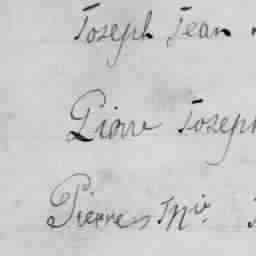 Joseph Jean
Pierre Joseph
Pierre Mie